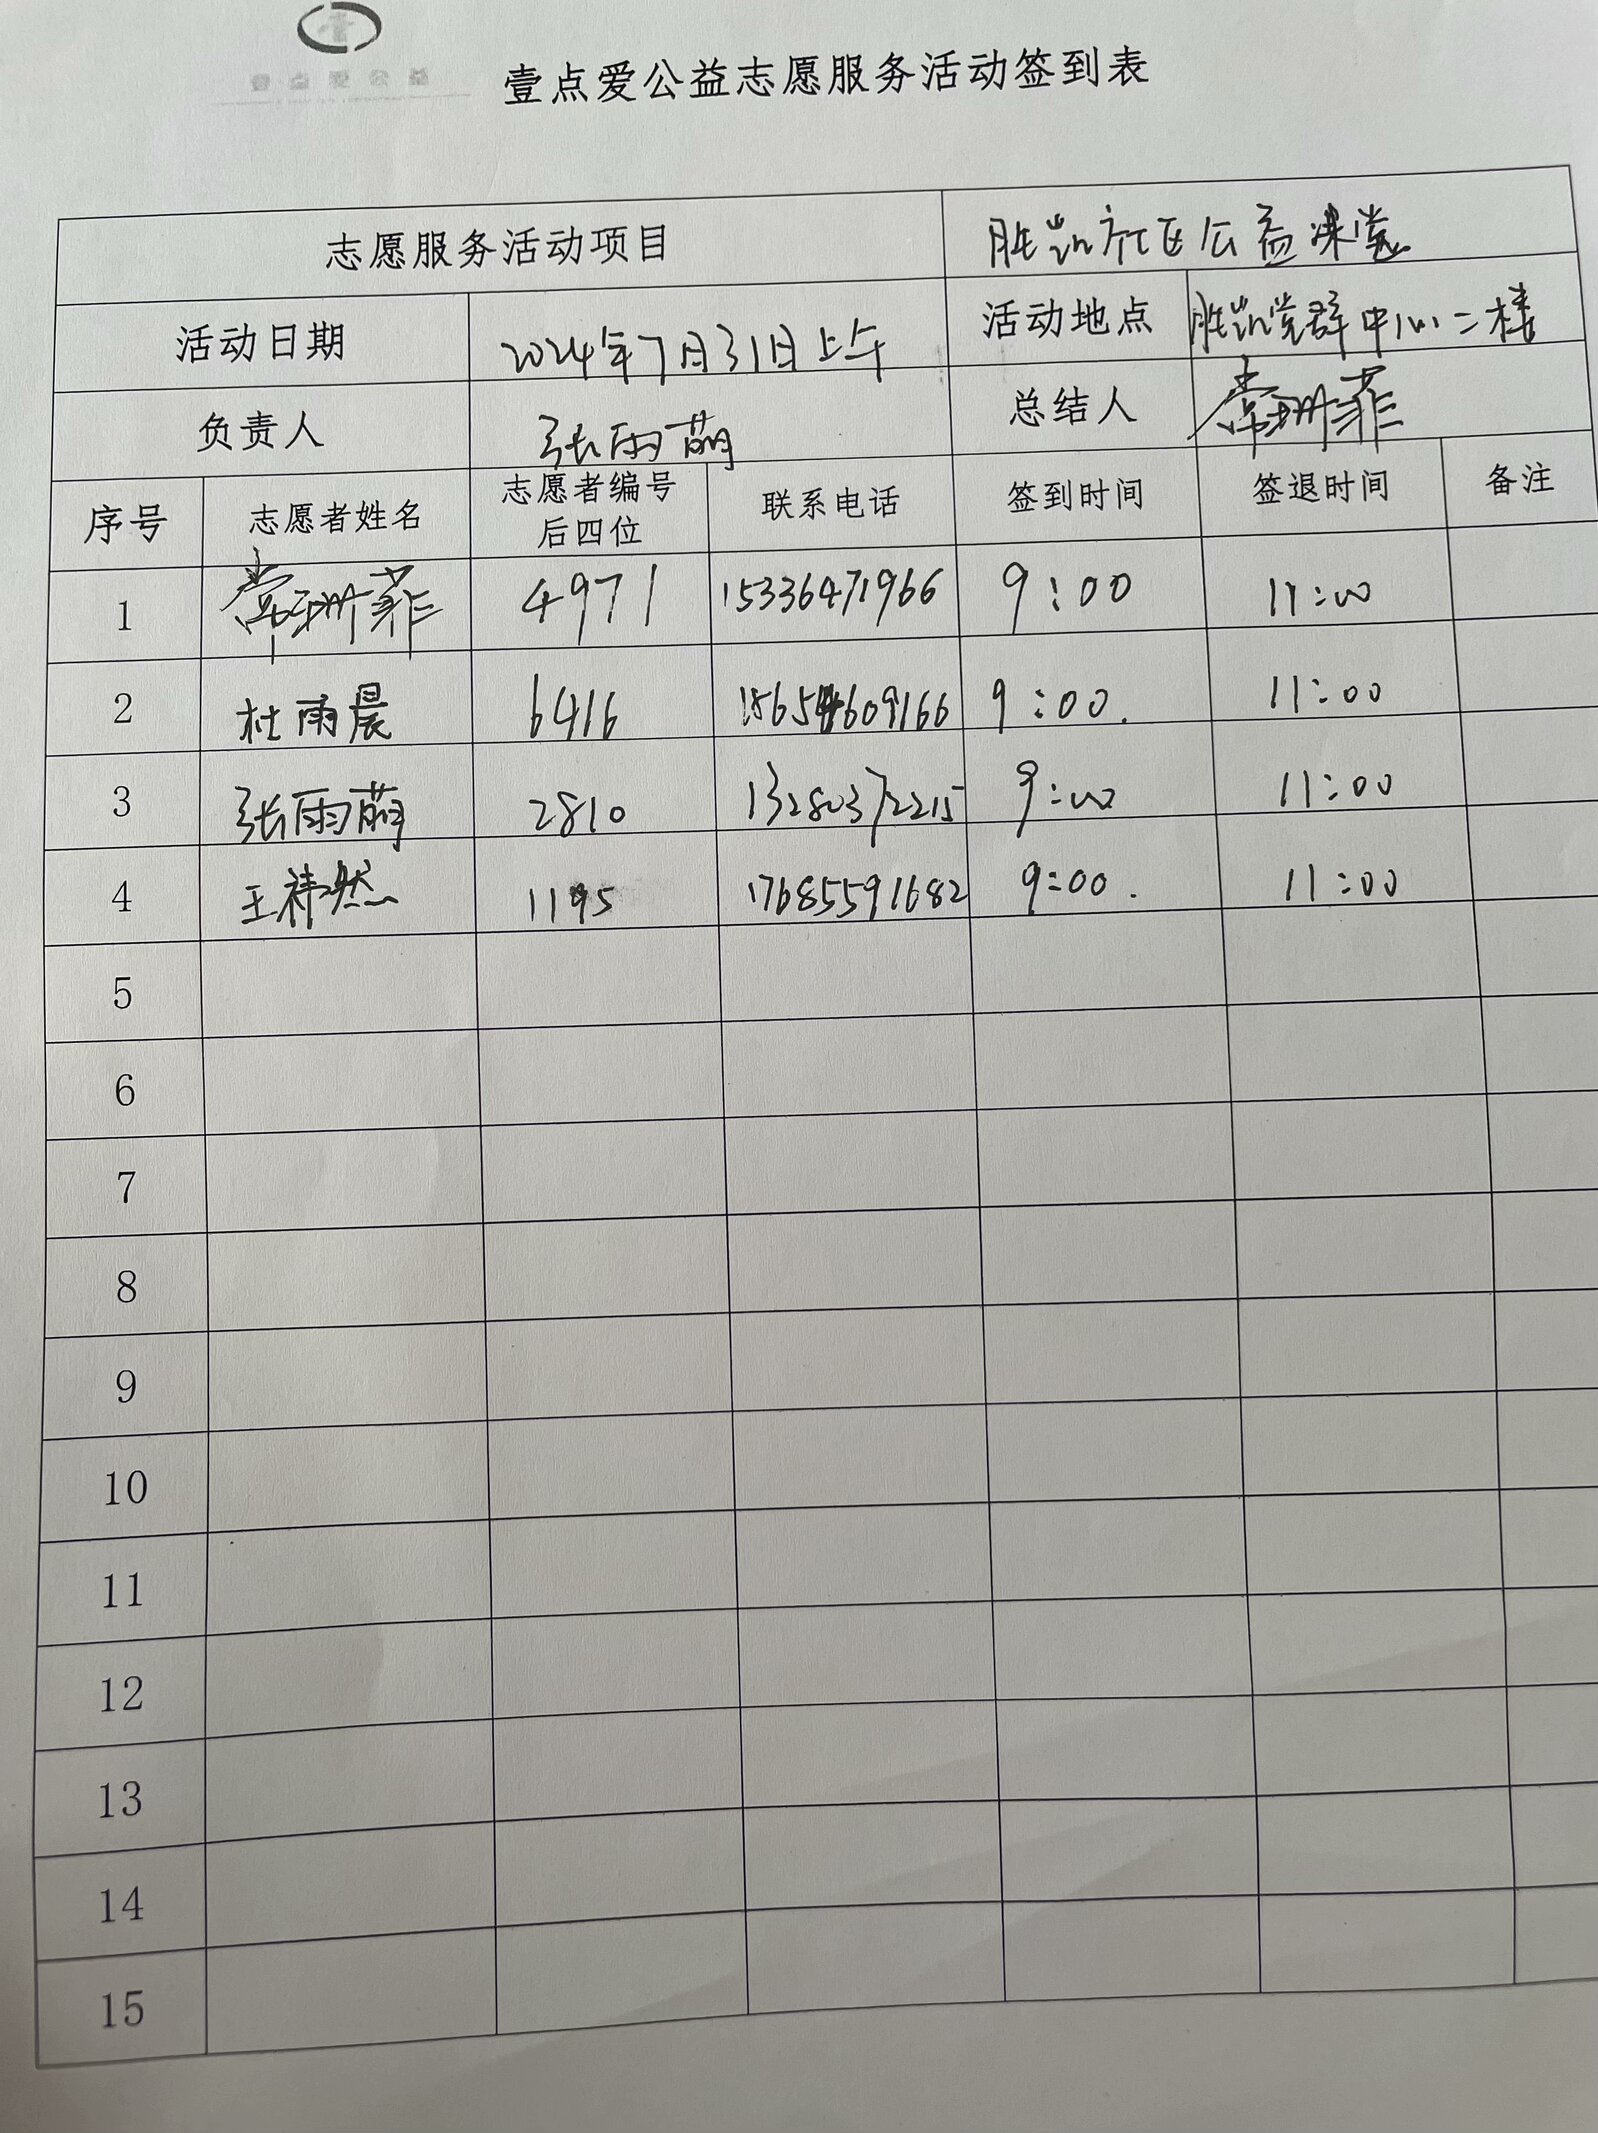 壹点爱公益
壹点爱公益志愿服务活动签到表
志愿服务活动项目 胜凯社区公益课堂
活动日期 2024年7月31日上午 活动地点 胜凯党群中心二楼
负责人 张雨萌 总结人 常珊菲
序号 志愿者姓名 志愿者编号 联系电话 签到时间 签退时间 备注
后四位
1 常珊菲 4971 15336471966 9:00 11:00
2 杜雨晨 6416 9:00. 11:00
3 张雨萌 2810 13280372215 9:00 11:00
4 王祎然 1195 17685591682 9:00. 11:00
5
6
7
8
9
10
11
12
13
14
15